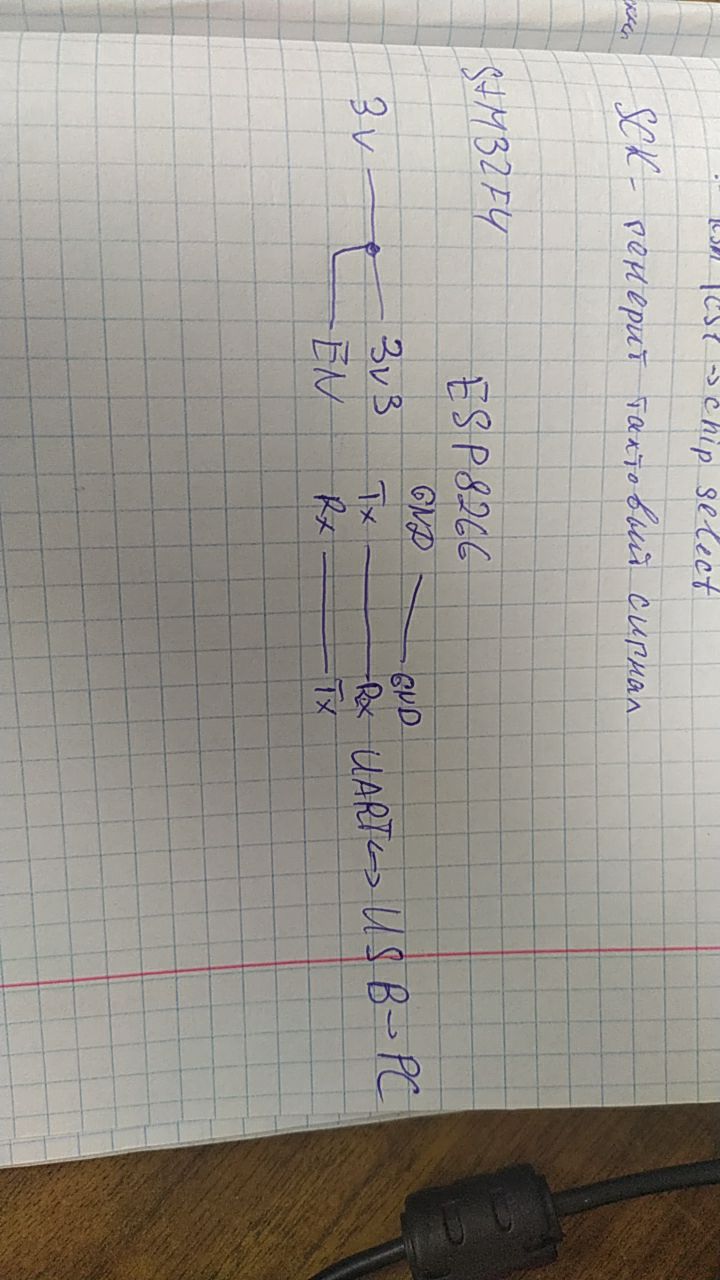 → chip select
SCK - генерит тактовый сигнал
STM32F4 ESP8266
GND GND
3v 3v3 Tx Rx UART↔USB→PC
EN Rx Tx